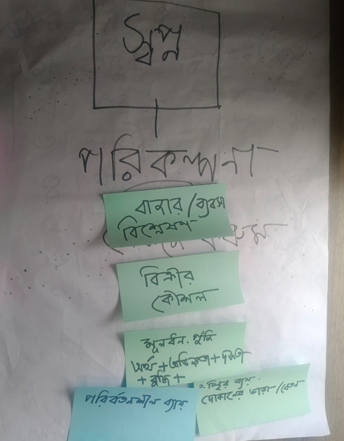 স্বপ্ন
পরিকল্পনা
বাজার/ব্যবসা
বিশ্লেষণ
বিক্রীর
কৌশল
মূলধন. পুঁজি
অর্থ + অভিজ্ঞতা +
+ বুদ্ধি +
পরিবর্তনশীল ব্যয়
দোকানের ভাড়া/